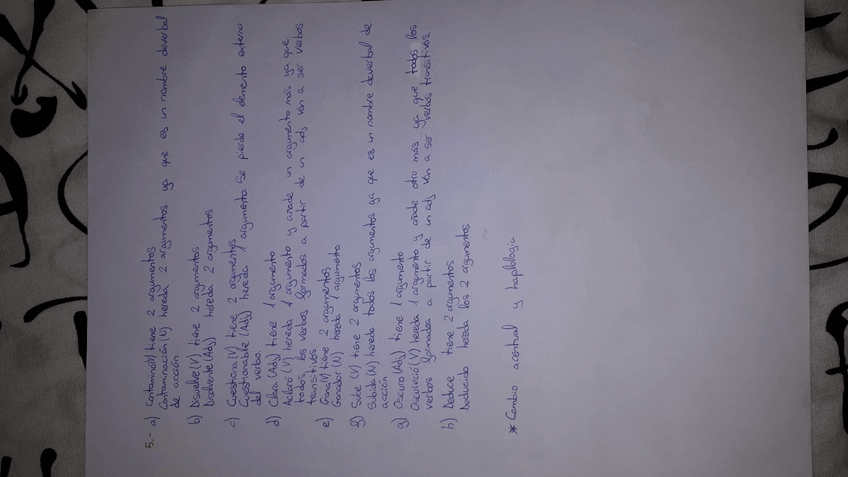 5.- a) Contaminó(V) tiene 2 argumentos
Contaminación (N) hereda 2 argumentos ya que es un nombre deverbal
de acción.
b) Disuelve (V) tiene 2 argumentos
Disolvente (Adj) hereda 2 argumentos
c) Cuestiona (V) tiene 2 argumentos
Cuestionable (Adj) hereda 1 argumento se pierde el elemento externo
del verbo.
d) Clara (Adj) tiene 1 argumento
Aclaró (V) hereda 1 argumento y añade un argumento más ya que
todos los verbos formados a partir de un adj van a ser verbos
transitivos
e) Gana(V) tiene 2 argumentos
Ganador (N) hereda 1 argumento
f) Sube (V) tiene 2 argumentos
Subida (N) hereda todos los argumentos ya que es un nombre deverbal de
acción
g) Oscuro (Adj) tiene 1 argumento
Oscureció (V) hereda 1 argumento y añade otro más ya que todos los
verbos formados a partir de un adj van a ser verbos transitivos.
h) Deduce tiene 2 argumentos
Deducido hereda los 2 argumentos
* Cambio acentual y haplología